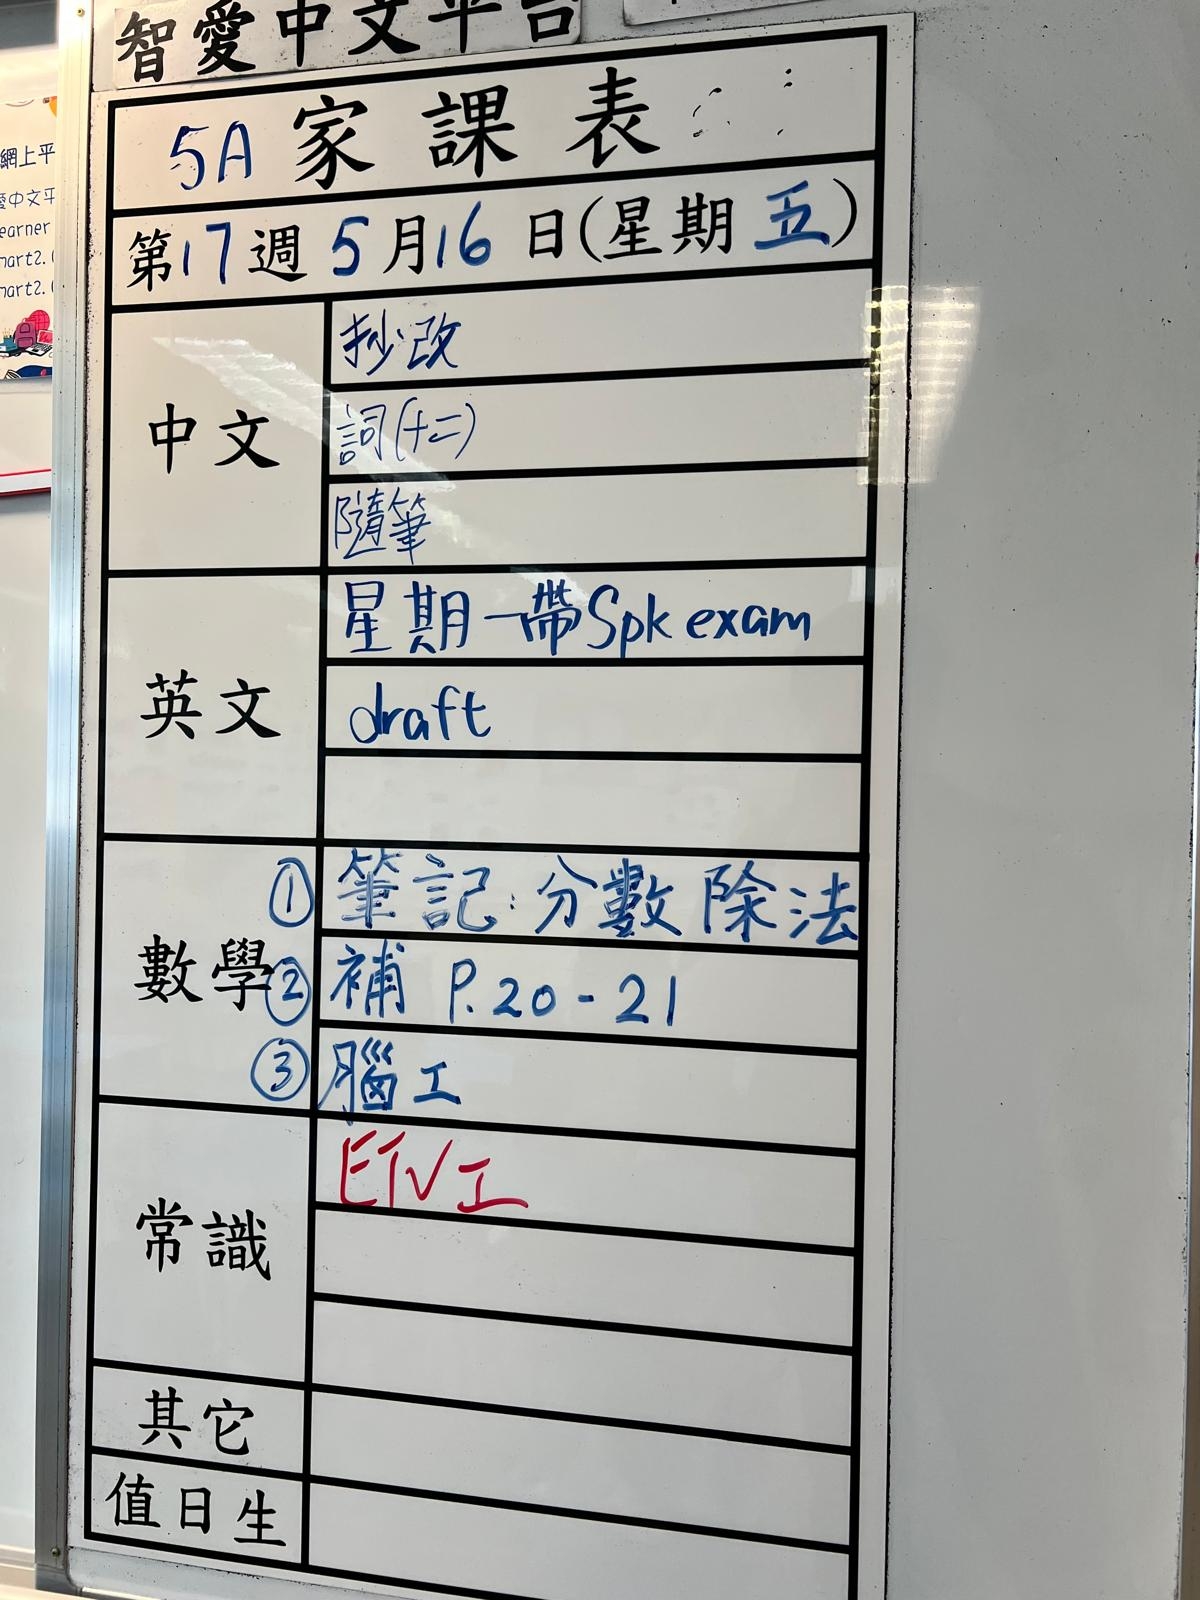 智愛中文平台
網上平
愛中文平
earner
mart2.
mart2.
5A 家課表
第17週 5月16日(星期五)
中文
抄·改
詞(十二)
隨筆
英文
星期一帶Spk exam
draft
數學
① 筆記:分數除法
② 補 P.20-21
③ 腦工
常識
ETV工
其它
值日生